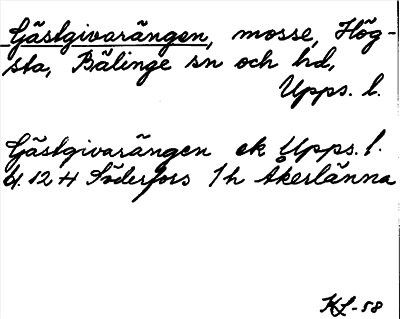 Gästgivarängen, mosse, Hög-
sta, Bälinge sn och hd,
Upps. l.
Gästgivarängen ek Upps. l.
bl. 12 H Söderfors 1h Åkerlänna
KL-58